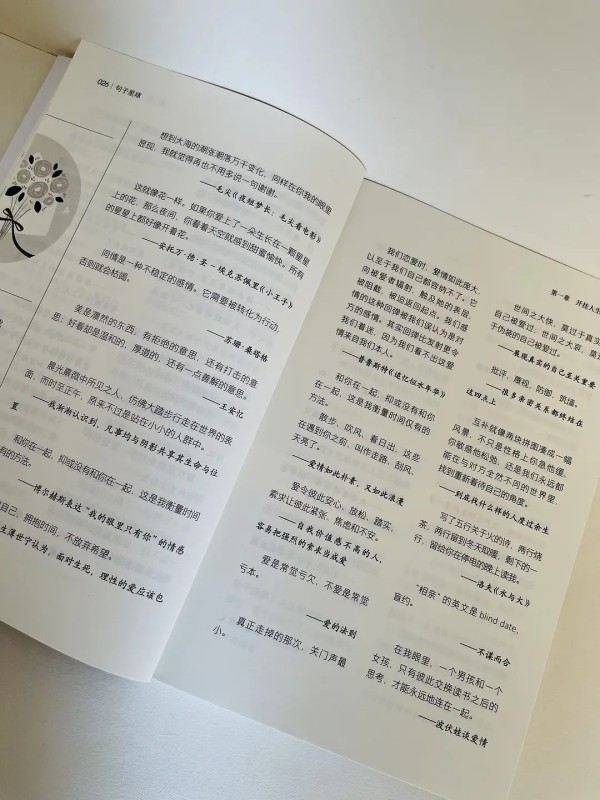 026 | 句子星球
想到大海的潮涨潮落万千变化，同样在你我的眼里
显现，我就觉得再也不用多说一句谢谢。
——毛尖《夜短梦长：毛尖看电影》
这就像花一样。如果你爱上了一朵生长在一颗星星
上的花，那么夜间，你看着天空就感到甜蜜愉快。所有
的星星上都好像开着花。
——安托万·德·圣-埃克苏佩里《小王子》
同情是一种不稳定的感情。它需要被转化为行动，
否则就会枯竭。
——苏珊·桑塔格
美是凛然的东西，有拒绝的意思，还有打击的意
思；好看却是温和的，厚道的，还有一点善解的意思。
——王安忆
晨光熹微中所见之人，仿佛大踏步行走在世界的表
面，而时至正午，原来不过是站在小小的人群中。
——我渐渐认识到，凡事均与阴影共享其生命与位
置
和你在一起，抑或没有和你在一起，这是我衡量时间
有的方法。
——博尔赫斯表达“我的眼里只有你”的情感
自己，拥抱时间，不放弃希望。
生薄世宁认为，面对生死，理性的爱应该包
我们恋爱时，爱情如此庞大，
以至于我们自己都容纳不了。它
向被爱者辐射，触及她的表层，
被阻截，被迫返回起点。我们感
情的这种回弹被我们误认为是对
方的感情。其实回弹比发射更令
我们着迷，因为我们看不出这爱
情来自我们本人。
——普鲁斯特《追忆似水年华》
和你在一起，抑或没有和你
在一起，这是我衡量时间仅有的
方法。
散步，吹风，看日出，这些
在遇到你之前，叫作走路，刮风，
天亮了。
——爱情如此朴素，又如此浪漫
爱令彼此安心、放松、踏实，
索求让彼此紧张、焦虑和不安。
——自我价值感不高的人，
容易把强烈的索求当成爱
爱是常觉亏欠，不爱是常觉
亏本。
——爱的法则
真正走掉的那次，关门声最
小。
第一章 开挂人生
世间之大快，莫过于真实
自己被爱过；世间之大哀，莫过
于伪装的自己被爱过。
——展现真实的自己至关重要
批评，蔑视，防御，筑墙。
——很多亲密关系都终结在
这四点上
互补就像两块拼图凑成一幅
风景，不只是性格上你急他缓，
你敏感他松弛，还是我们永远都
能在与对方全然不同的世界里，
找到重新看待自己的角度。
——到底找什么样的人度过余生
写了五行关于火的诗，两行烧
茶，两行留到冬天取暖，剩下的一
行，留给你在停电的晚上读我。
——洛夫《水与火》
“相亲”的英文是 blind date，
盲约。
——不谋而合
在我眼里，一个男孩和一个
女孩，只有彼此交换读书之后的
思考，才能永远地连在一起。
——波伏娃谈爱情